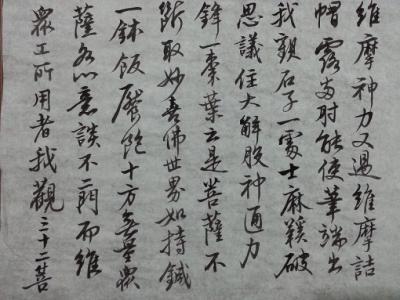 眾工所用者我觀三十二菩
薩各以意談不二門而維
一鉢飯饜飽十方無量眾
斷取妙喜佛世界如持鍼
鋒一棗葉云是菩薩不
思議住大解脫神通力
我觀石子一處士麻鞵破
帽露兩肘能使筆端出
維摩神力又過維摩詰